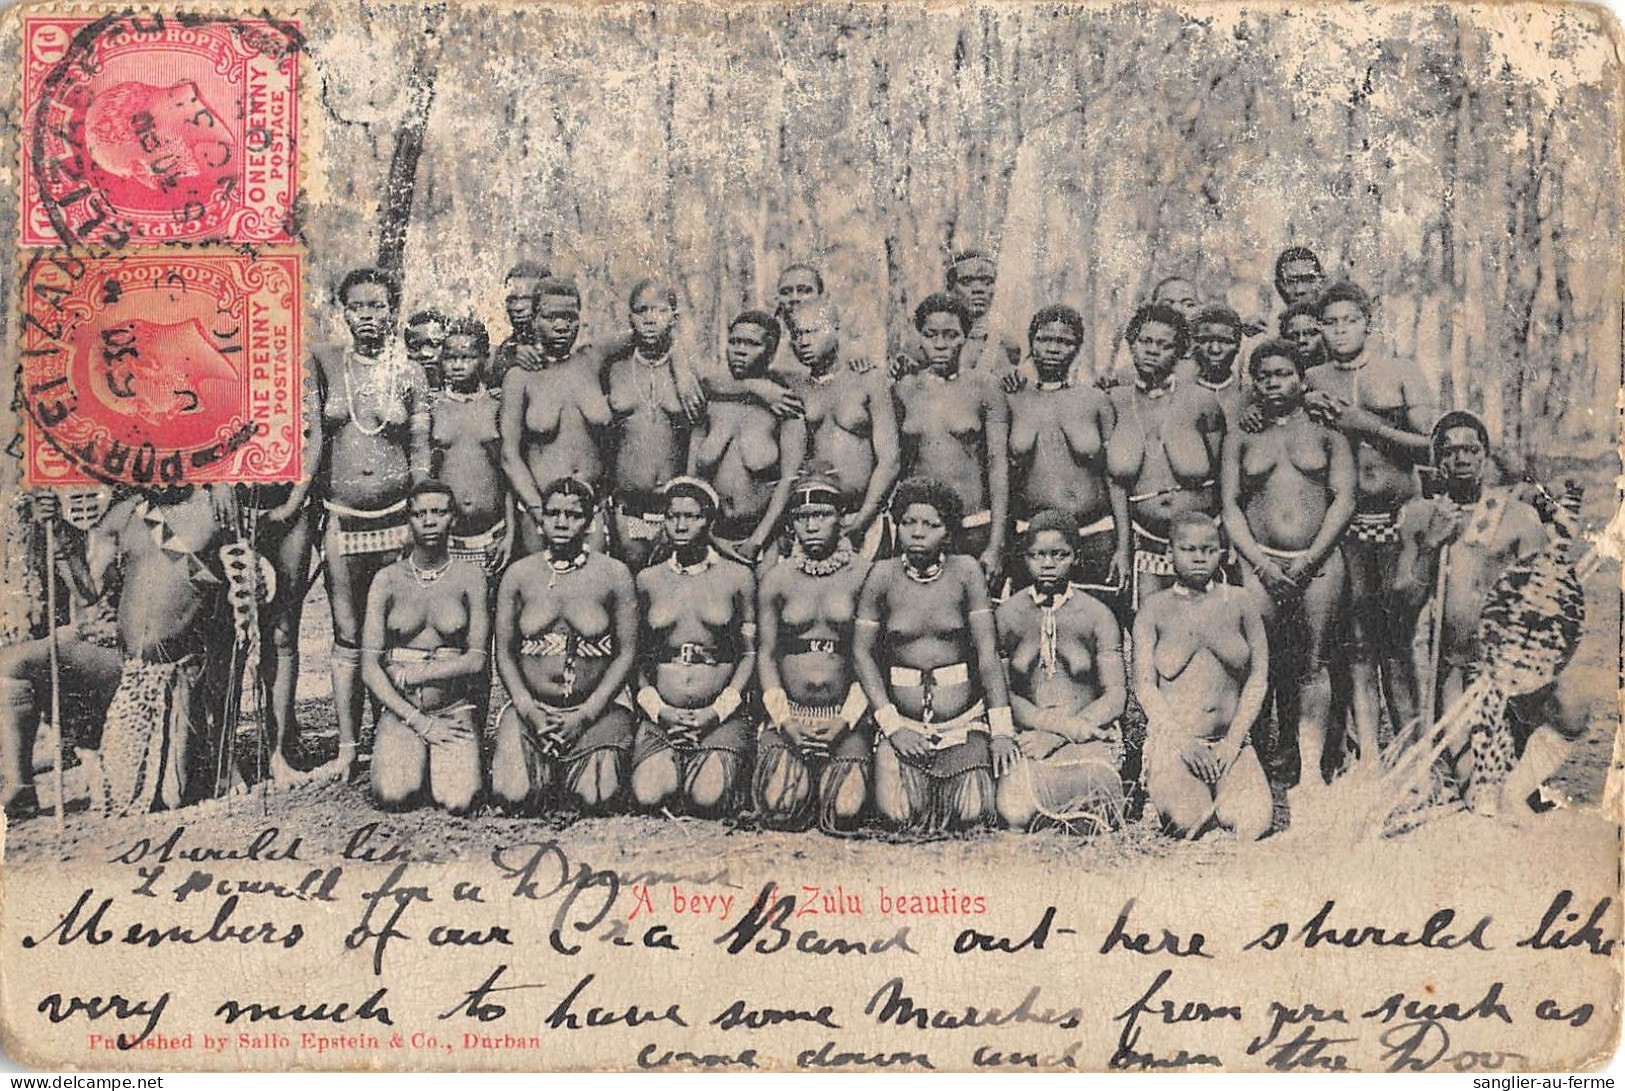 GOOD HOPE
1d
ONE PENNY
POSTAGE
CAPE
PORT ELIZABETH
GOOD HOPE
1d
ONE PENNY
POSTAGE
PORT ELIZABETH
should like
for a Drum
A bevy of Zulu beauties
Members of our Band out here should like
very much to have some Marches from you such as
Published by Sallo Epstein & Co., Durban
come down and the
sanglier-au-ferme.com